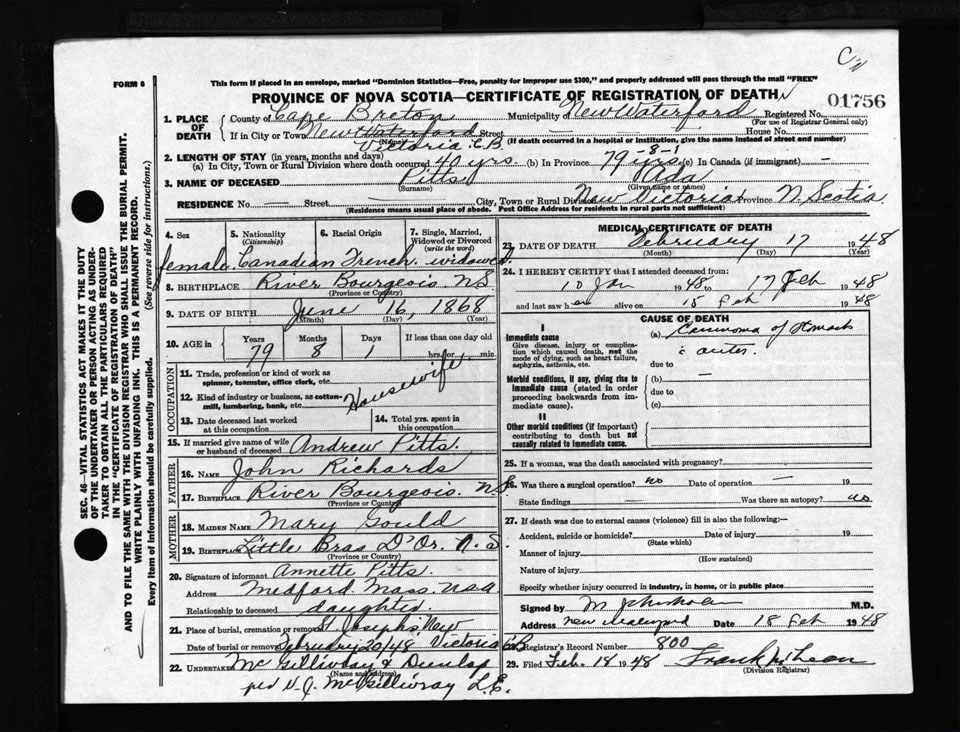 C
FORM 6
This form if placed in an envelope, marked "Dominion Statistics—Free, penalty for improper use $300," and properly addressed will pass through the mail "FREE"
PROVINCE OF NOVA SCOTIA—CERTIFICATE OF REGISTRATION OF DEATH
01756
1. PLACE OF DEATH
County of Cape Breton Municipality of New Waterford Registered No.
(For use of Registrar General only)
If in City or Town New Waterford Street — House No. —
(Name) (If death occurred in a hospital or institution, give the name instead of street and number)
Victoria C.B.
2. LENGTH OF STAY (in years, months and days)
(a) In City, Town or Rural Division where death occurred 40 yrs. (b) In Province 79 yrs -8-1 (c) In Canada (if immigrant) —
3. NAME OF DECEASED Pitts Ada
(Surname) (Given name or names)
RESIDENCE No. — Street — City, Town or Rural New Victoria Province N. Scotia
(Residence means usual place of abode. Post Office Address for residents in rural parts not sufficient)
SEC. 46—VITAL STATISTICS ACT MAKES IT THE DUTY
OF THE UNDERTAKER OR PERSON ACTING AS UNDER-
TAKER TO OBTAIN ALL THE PARTICULARS REQUIRED
IN THE "CERTIFICATE OF REGISTRATION OF DEATH"
AND TO FILE THE SAME WITH THE DIVISION REGISTRAR WHO SHALL ISSUE THE BURIAL PERMIT.
WRITE PLAINLY WITH UNFADING INK. THIS IS A PERMANENT RECORD.
Every item of information should be carefully supplied. (See reverse side for instructions.)
4. Sex 5. Nationality (Citizenship) 6. Racial Origin 7. Single, Married, Widowed or Divorced (write the word)
female. Canadian French. widowed.
8. BIRTHPLACE River Bourgeois. N.S.
(Province or Country)
9. DATE OF BIRTH June 16, 1868
(Month) (Day) (Year)
10. AGE in Years Months Days If less than one day old
79 8 1 hrs. or min.
OCCUPATION
11. Trade, profession or kind of work as spinner, teamster, office clerk, etc.
Housewife
12. Kind of industry or business, as cotton-mill, lumbering, bank, etc.
13. Date deceased last worked at this occupation 14. Total yrs. spent in this occupation
15. If married give name of wife or husband of deceased Andrew Pitts.
FATHER
16. NAME John Richards
17. BIRTHPLACE River Bourgeois. N.S.
(Province or Country)
MOTHER
18. MAIDEN NAME Mary Gould
19. BIRTHPLACE Little Bras D'Or. N.S.
(Province or Country)
20. Signature of informant Annette Pitts.
Address Medford. Mass. USA
Relationship to deceased daughter.
21. Place of burial, cremation or removal St Josephs New Victoria C.B.
Date of burial or removal February 20/48
22. UNDERTAKER McGillivray & Dunlap
(Name and address)
per McGillivray L.E.
MEDICAL CERTIFICATE OF DEATH
23. DATE OF DEATH February 17 1948
(Month) (Day) (Year)
24. I HEREBY CERTIFY that I attended deceased from:
10 Jan 1948 to 17 Feb 1948
and last saw her alive on 15 Feb 1948
CAUSE OF DEATH
I
Immediate cause (a) Carcinoma of stomach
Give disease, injury or complication which caused death, not the mode of dying, such as heart failure, asphyxia, asthenia, etc.
due to
Morbid conditions, if any, giving rise to immediate cause (stated in order proceeding backwards from immediate cause).
(b) —
due to
(c)
II
Other morbid conditions (if important) contributing to death but not causally related to immediate cause.
25. If a woman, was the death associated with pregnancy?
26. Was there a surgical operation? no Date of operation — 19
State findings — Was there an autopsy? no
27. If death was due to external causes (violence) fill in also the following:—
Accident, suicide or homicide? Date of injury 19
(State which)
Manner of injury
(How sustained)
Nature of injury
Specify whether injury occurred in industry, in home, or in public place
Signed by M.D.
Address New Waterford Date 18 Feb 1948
28. Registrar's Record Number 800
29. Filed Feb. 18 1948
(Division Registrar)